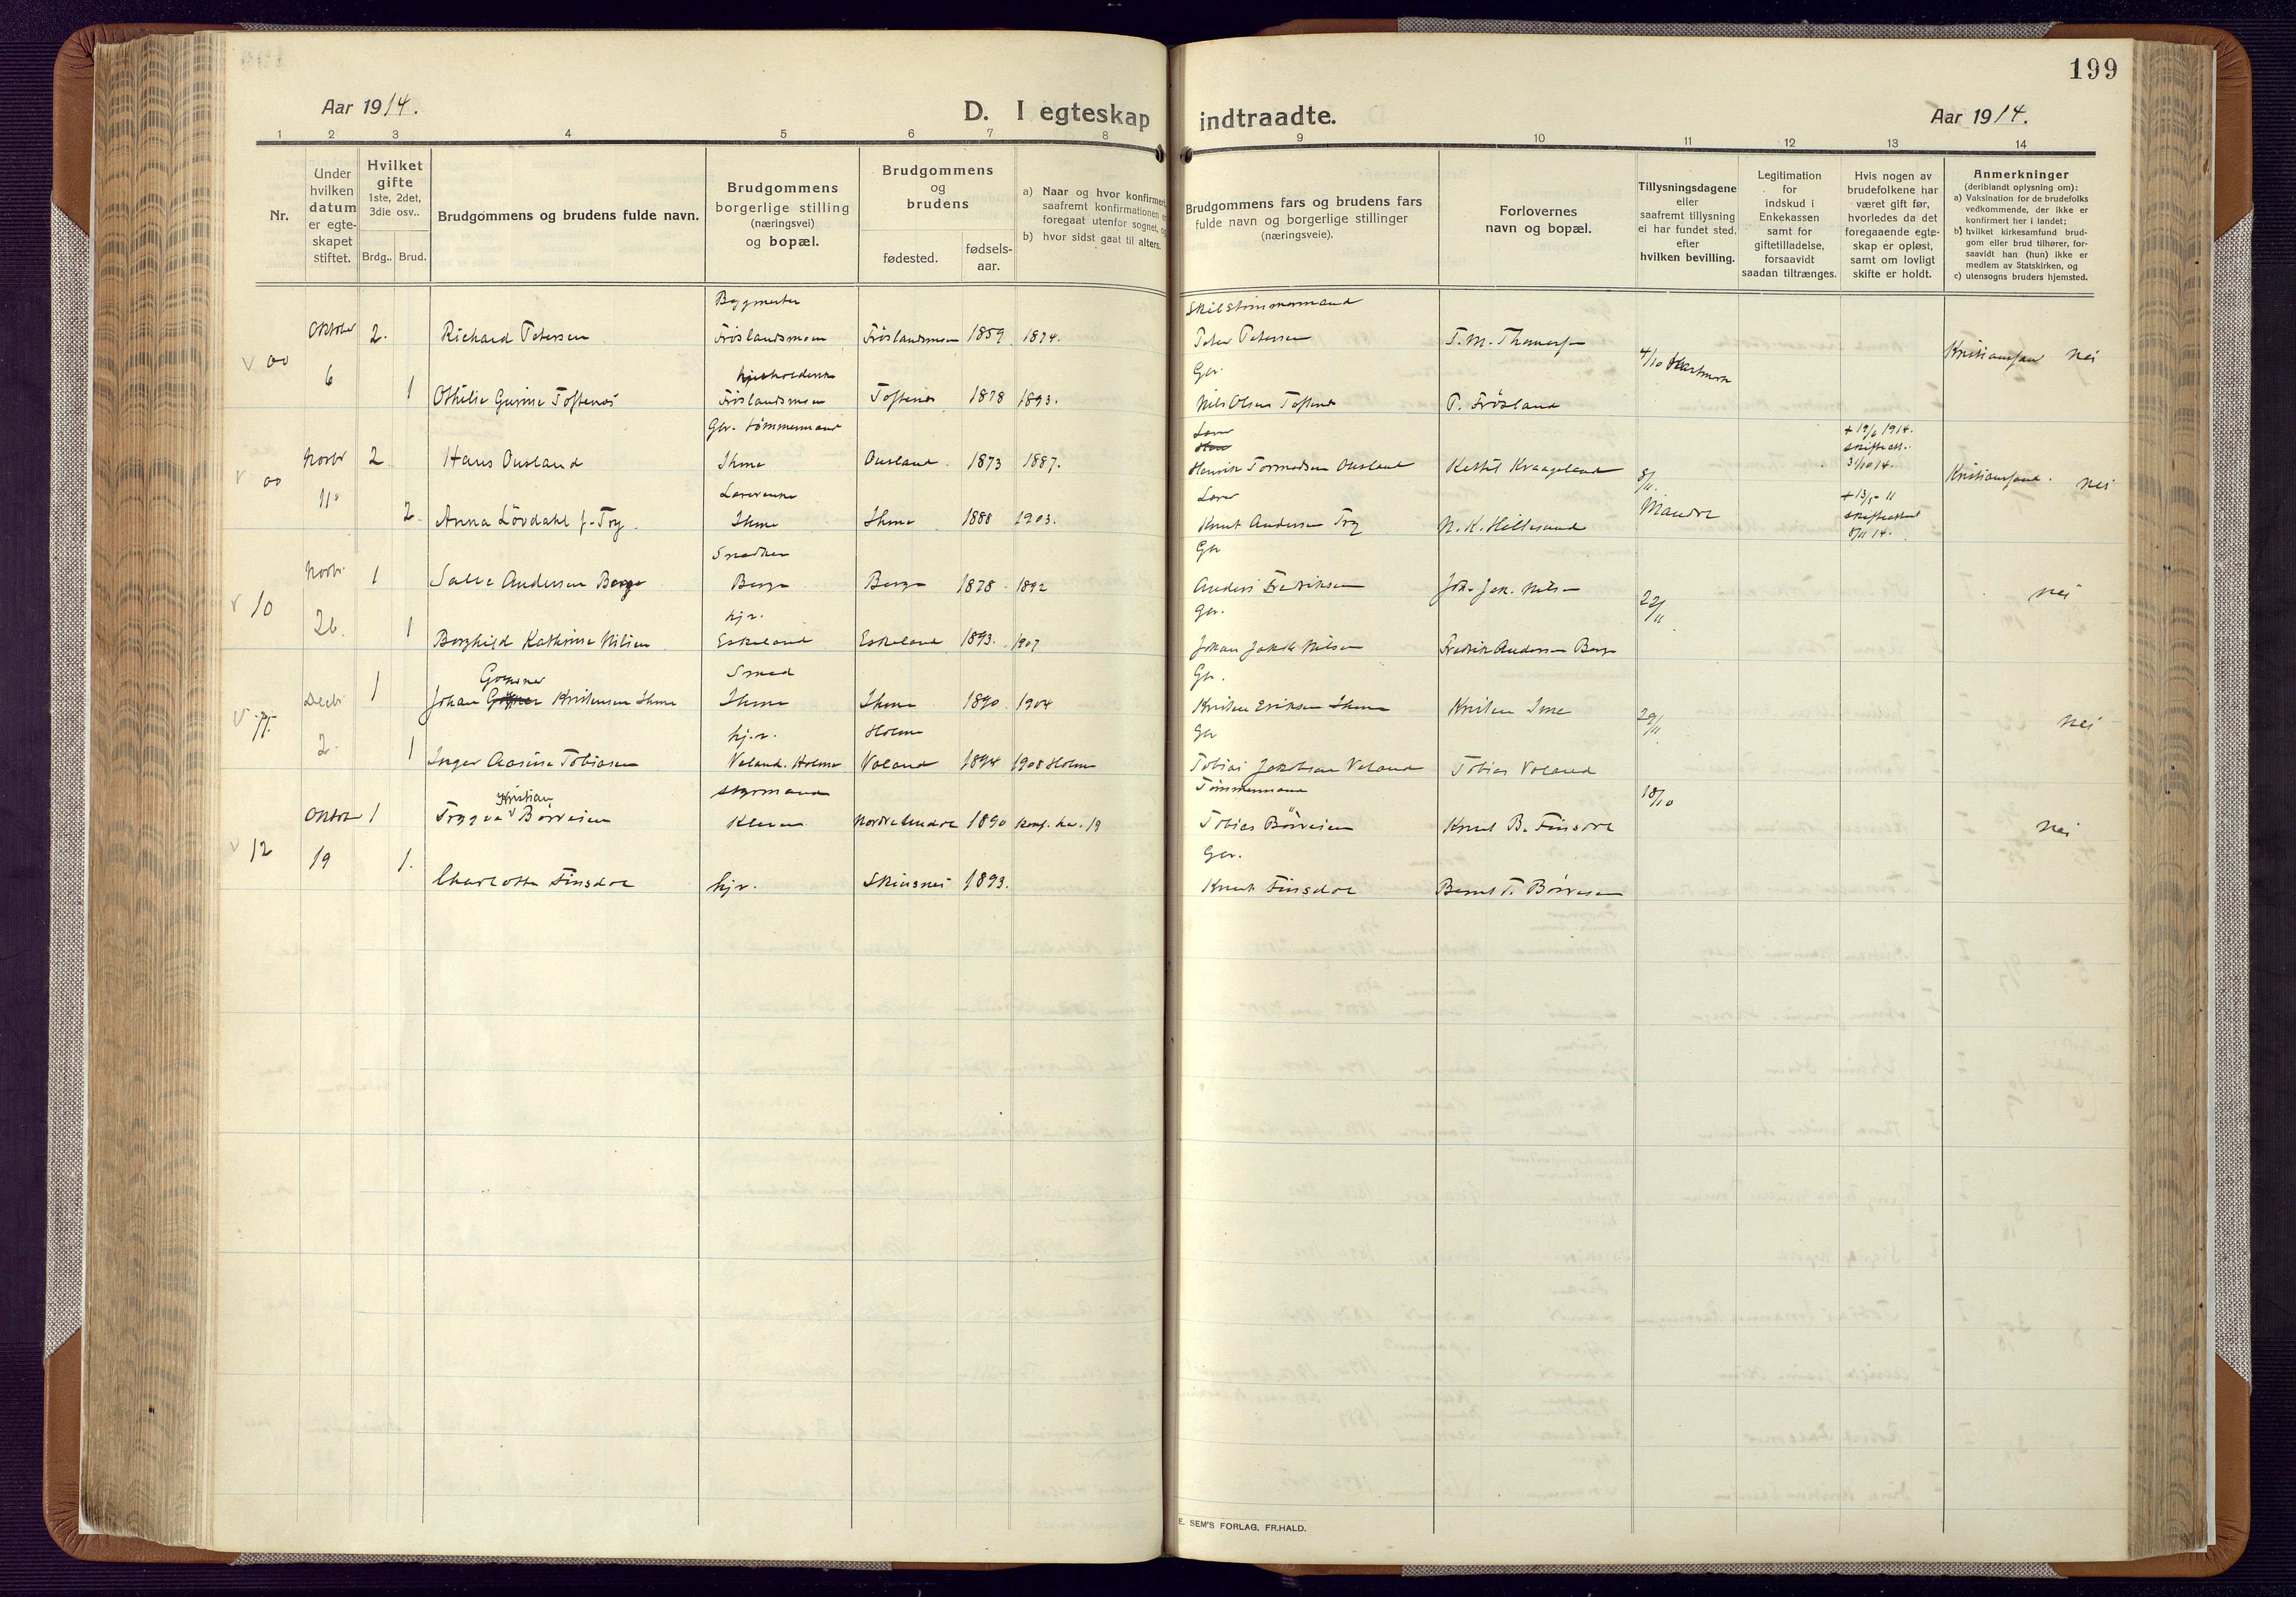 199
Aar 1914.
D. I egteskap indtraadte.
Aar 1914.
1 2 3 4 5 6 7 8 9 10 11 12 13 14
Nr.
Under hvilken datum er egte-skapet stiftet.
Hvilket gifte 1ste, 2det, 3die osv..
Brdg.. Brud.
Brudgommens og brudens fulde navn.
Brudgommens borgerlige stilling (næringsvei) og bopæl.
Brudgommens og brudens
fødested. fødsels-aar.
a) Naar og hvor konfirmert
saafremt konfirmationen
foregaat utenfor sognet,
b) hvor sidst gaat til alters.
Brudgommens fars og brudens fars
fulde navn og borgerlige stillinger
(næringsveie).
Forlovernes
navn og bopæl.
Tillysningsdagene
eller
saafremt tillysning
ei har fundet sted.
efter
hvilken bevilling.
Legitimation
for
indskud i
Enkekassen
samt for
giftetilladelse,
forsaavidt
saadan tiltrænges.
Hvis nogen av
brudefolkene har
været gift før,
hvorledes da det
foregaaende egte-
skap er opløst,
samt om lovligt
skifte er holdt.
Anmerkninger
(deriblandt oplysning om):
a) Vaksination for de brudefolks
vedkommende, der ikke er
konfirmert her i landet;
b) hvilket kirkesamfund brud-
gom eller brud tilhører, for-
saavidt han (hun) ikke er
medlem av Statskirken, og
c) utensogns bruders hjemsted.
Bygmester Skibstømmermand
Oktober 2. Richard Petersen Frøslandsmoen Frøslandsmoen 1859 1874. Peter Petersen T. M. Thomersen
v 00 4/10 Kristiansand nei
6 Gbr.
1 Othilie Gurine Toftenes Frøslandsmoen Toftenes 1878 1893. Nils Olsen Toftenes P. Frøsland
Gbr. tømmermand Lærer + 19/6 1914.
Novbr 2 Hans Ousland Ihme Ousland 1873 1887. Henrik Tormodsen Ousland Kettil Kraageland 31/10 14.
v 00 8/11. Kristiansand. nei
11 Lærerenke Lærer + 13/5 - 11
2. Anna Løvdahl f. Try Ihme Ihme 1888 1903. Knut Andersen Try N. K. Hillesund Mandal 5/11 14.
Snedker Gbr
Novbr. 1 Salve Andersen Berge Berge Berge 1878 1892 Anders Fredriksen Joh. Jak. Nilsen
v 10 22/11 nei
26. hjv. Gbr.
1 Borghild Kathrine Nilsen Eskeland Eskeland 1893. 1907 Johan Jakob Nilsen Fredrik Andersen Berge
Smed Gbr.
Decbr. 1 Johan Kristensen Ihme Ihme Ihme 1890 1904 Kristen Eriksen Ihme Kristen Ime
v 11. 29/11 nei
2. hjv. Holme Gbr
1 Inger Aasine Tobiasen Valand. Holme Valand 1894 1908 Holme Tobias Jakobsen Valand Tobias Valand
Kristian styrmand Tømmermand 18/10
Oktober 1 Trygve Børresen Kleven Nordre Undal 1890 konf. her. 19 Tobias Børresen Knut B. Finsdal
v 12 nei
19 Gbr.
1. Charlotte Finsdal hjv. Skinsnes 1893. Knut Finsdal Bernt T. Børresen
E. SEM'S FORLAG, FR.HALD.